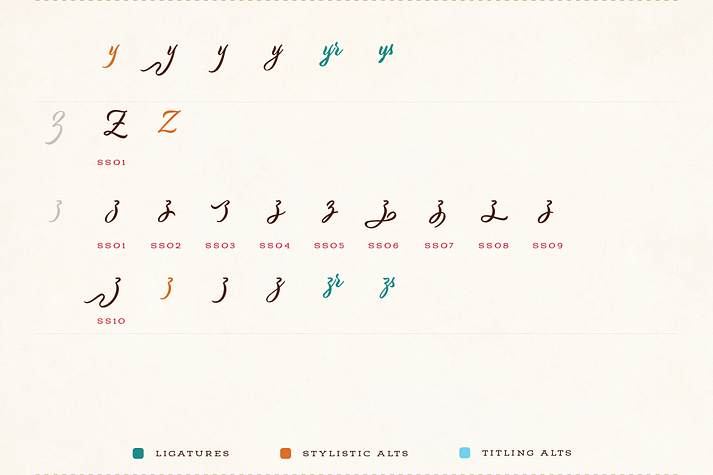 y y y y yr ys
Z Z Z
SS01
z z z z z z z z z z
SS01 SS02 SS03 SS04 SS05 SS06 SS07 SS08 SS09
z z z z zr zs
SS10
LIGATURES STYLISTIC ALTS TITLING ALTS